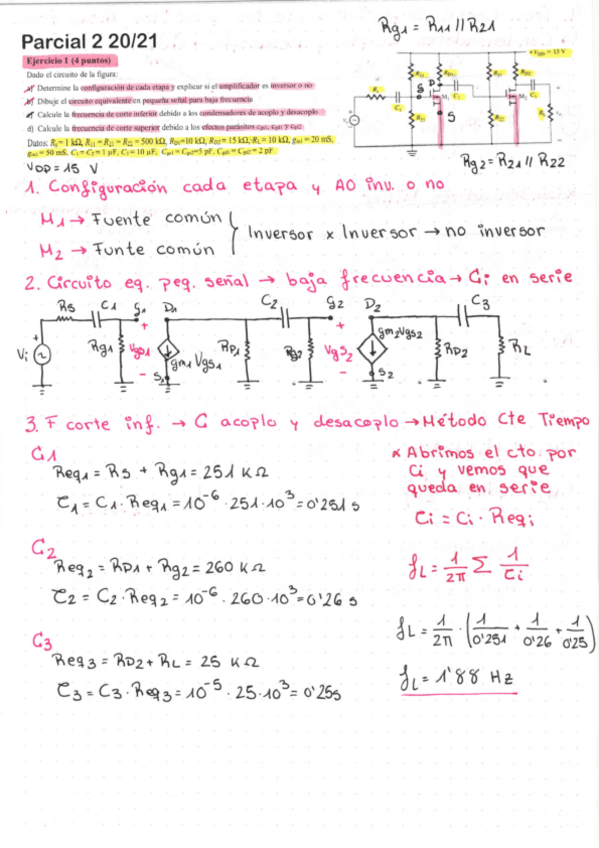 Rg1 = R11 // R21
Parcial 2 20/21
Ejercicio 1 (4 puntos)
Dado el circuito de la figura:
a) Determine la configuración de cada etapa y explicar si el amplificador es inversor o no
b) Dibuje el circuito equivalente en pequeña señal para baja frecuencia
c) Calcule la frecuencia de corte inferior debido a los condensadores de acoplo y desacoplo
d) Calcule la frecuencia de corte superior debido a los efectos parásitos Cgs1, Cgs2 y Cgd2
Datos: RS= 1 kΩ, R11 = R21 = R22 = 500 kΩ, RD1=10 kΩ, RD2= 15 kΩ, RL = 10 kΩ, gm1 = 20 mS,
gm2 = 50 mS, C1 = C2 = 1 μF, C3 = 10 μF, Cgs1 = Cgs2=5 pF, Cgd1 = Cgd2 = 2 pF
VDD = 15 V
RS
C1
R11
R21
RD1
G
D
S
M1
C2
R12
R22
RD2
M2
C3
RL
S
Vi
Rg2 = R21 // R22
1. Configuración cada etapa y AO inv. o no
M1 → Fuente común
M2 → Funte común
Inversor x Inversor → no inversor
2. Circuito eq. peq. señal → baja frecuencia → Ci en serie
RS C1 g1 D1 C2 g2 D2 C3
Vi Rg1 Vgs1 gm1 Vgs1 RD1 Rg2 VgS2 gm2Vgs2 RD2 RL
S1 S2
3. F corte inf. → C acoplo y desacoplo → Método Cte Tiempo
C1
Req1 = RS + Rg1 = 251 KΩ
τ1 = C1 · Req1 = 10⁻⁶ · 251 · 10³ = 0'251 s
* Abrimos el cto. por
Ci y vemos que
queda en serie
τi = Ci · Reqi
C2
Req2 = RD1 + Rg2 = 260 KΩ
τ2 = C2 · Req2 = 10⁻⁶ · 260 · 10³ = 0'26 s
fL = 1/2π Σ 1/τi
fL = 1/2π · (1/0'251 + 1/0'26 + 1/0'25)
C3
Req3 = RD2 + RL = 25 KΩ
τ3 = C3 · Req3 = 10⁻⁵ · 25 · 10³ = 0'25s
fL = 1'88 Hz